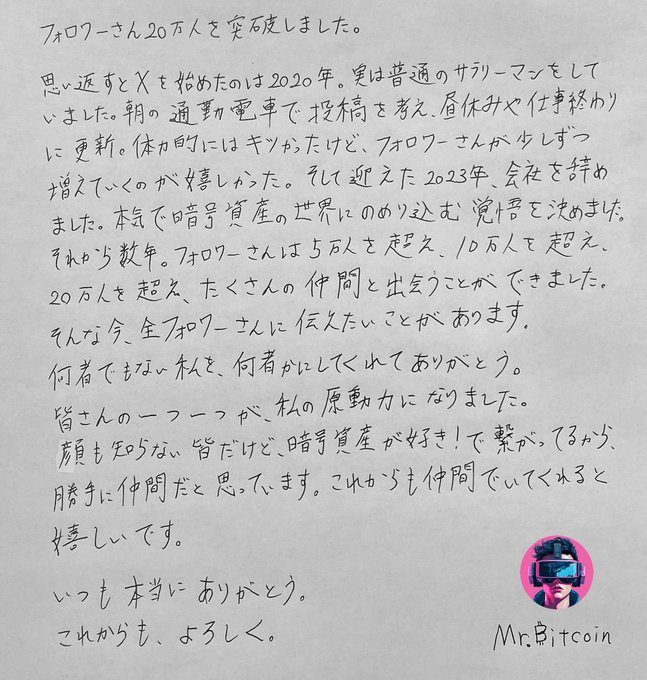 フォロワーさん20万人を突破しました。
思い返すとXを始めたのは2020年。実は普通のサラリーマンをして
いました。朝の通勤電車で投稿を考え、昼休みや仕事終わり
に更新。体力的にはキツかったけど、フォロワーさんが少しずつ
増えていくのが嬉しかった。そして迎えた2023年、会社を辞め
ました。本気で暗号資産の世界にのめり込む覚悟を決めました。
それから数年。フォロワーさんは5万人を超え、10万人を超え、
20万人を超え、たくさんの仲間と出会うことができました。
そんな今、全フォロワーさんに伝えたいことがあります。
何者でもない私を、何者かにしてくれてありがとう。
皆さんの一つ一つが、私の原動力になりました。
顔も知らない皆だけど、暗号資産が好き!で繋がってるから、
勝手に仲間だと思っています。これからも仲間でいてくれると
嬉しいです。
いつも本当にありがとう。
これからも、よろしく。
Mr.Bitcoin